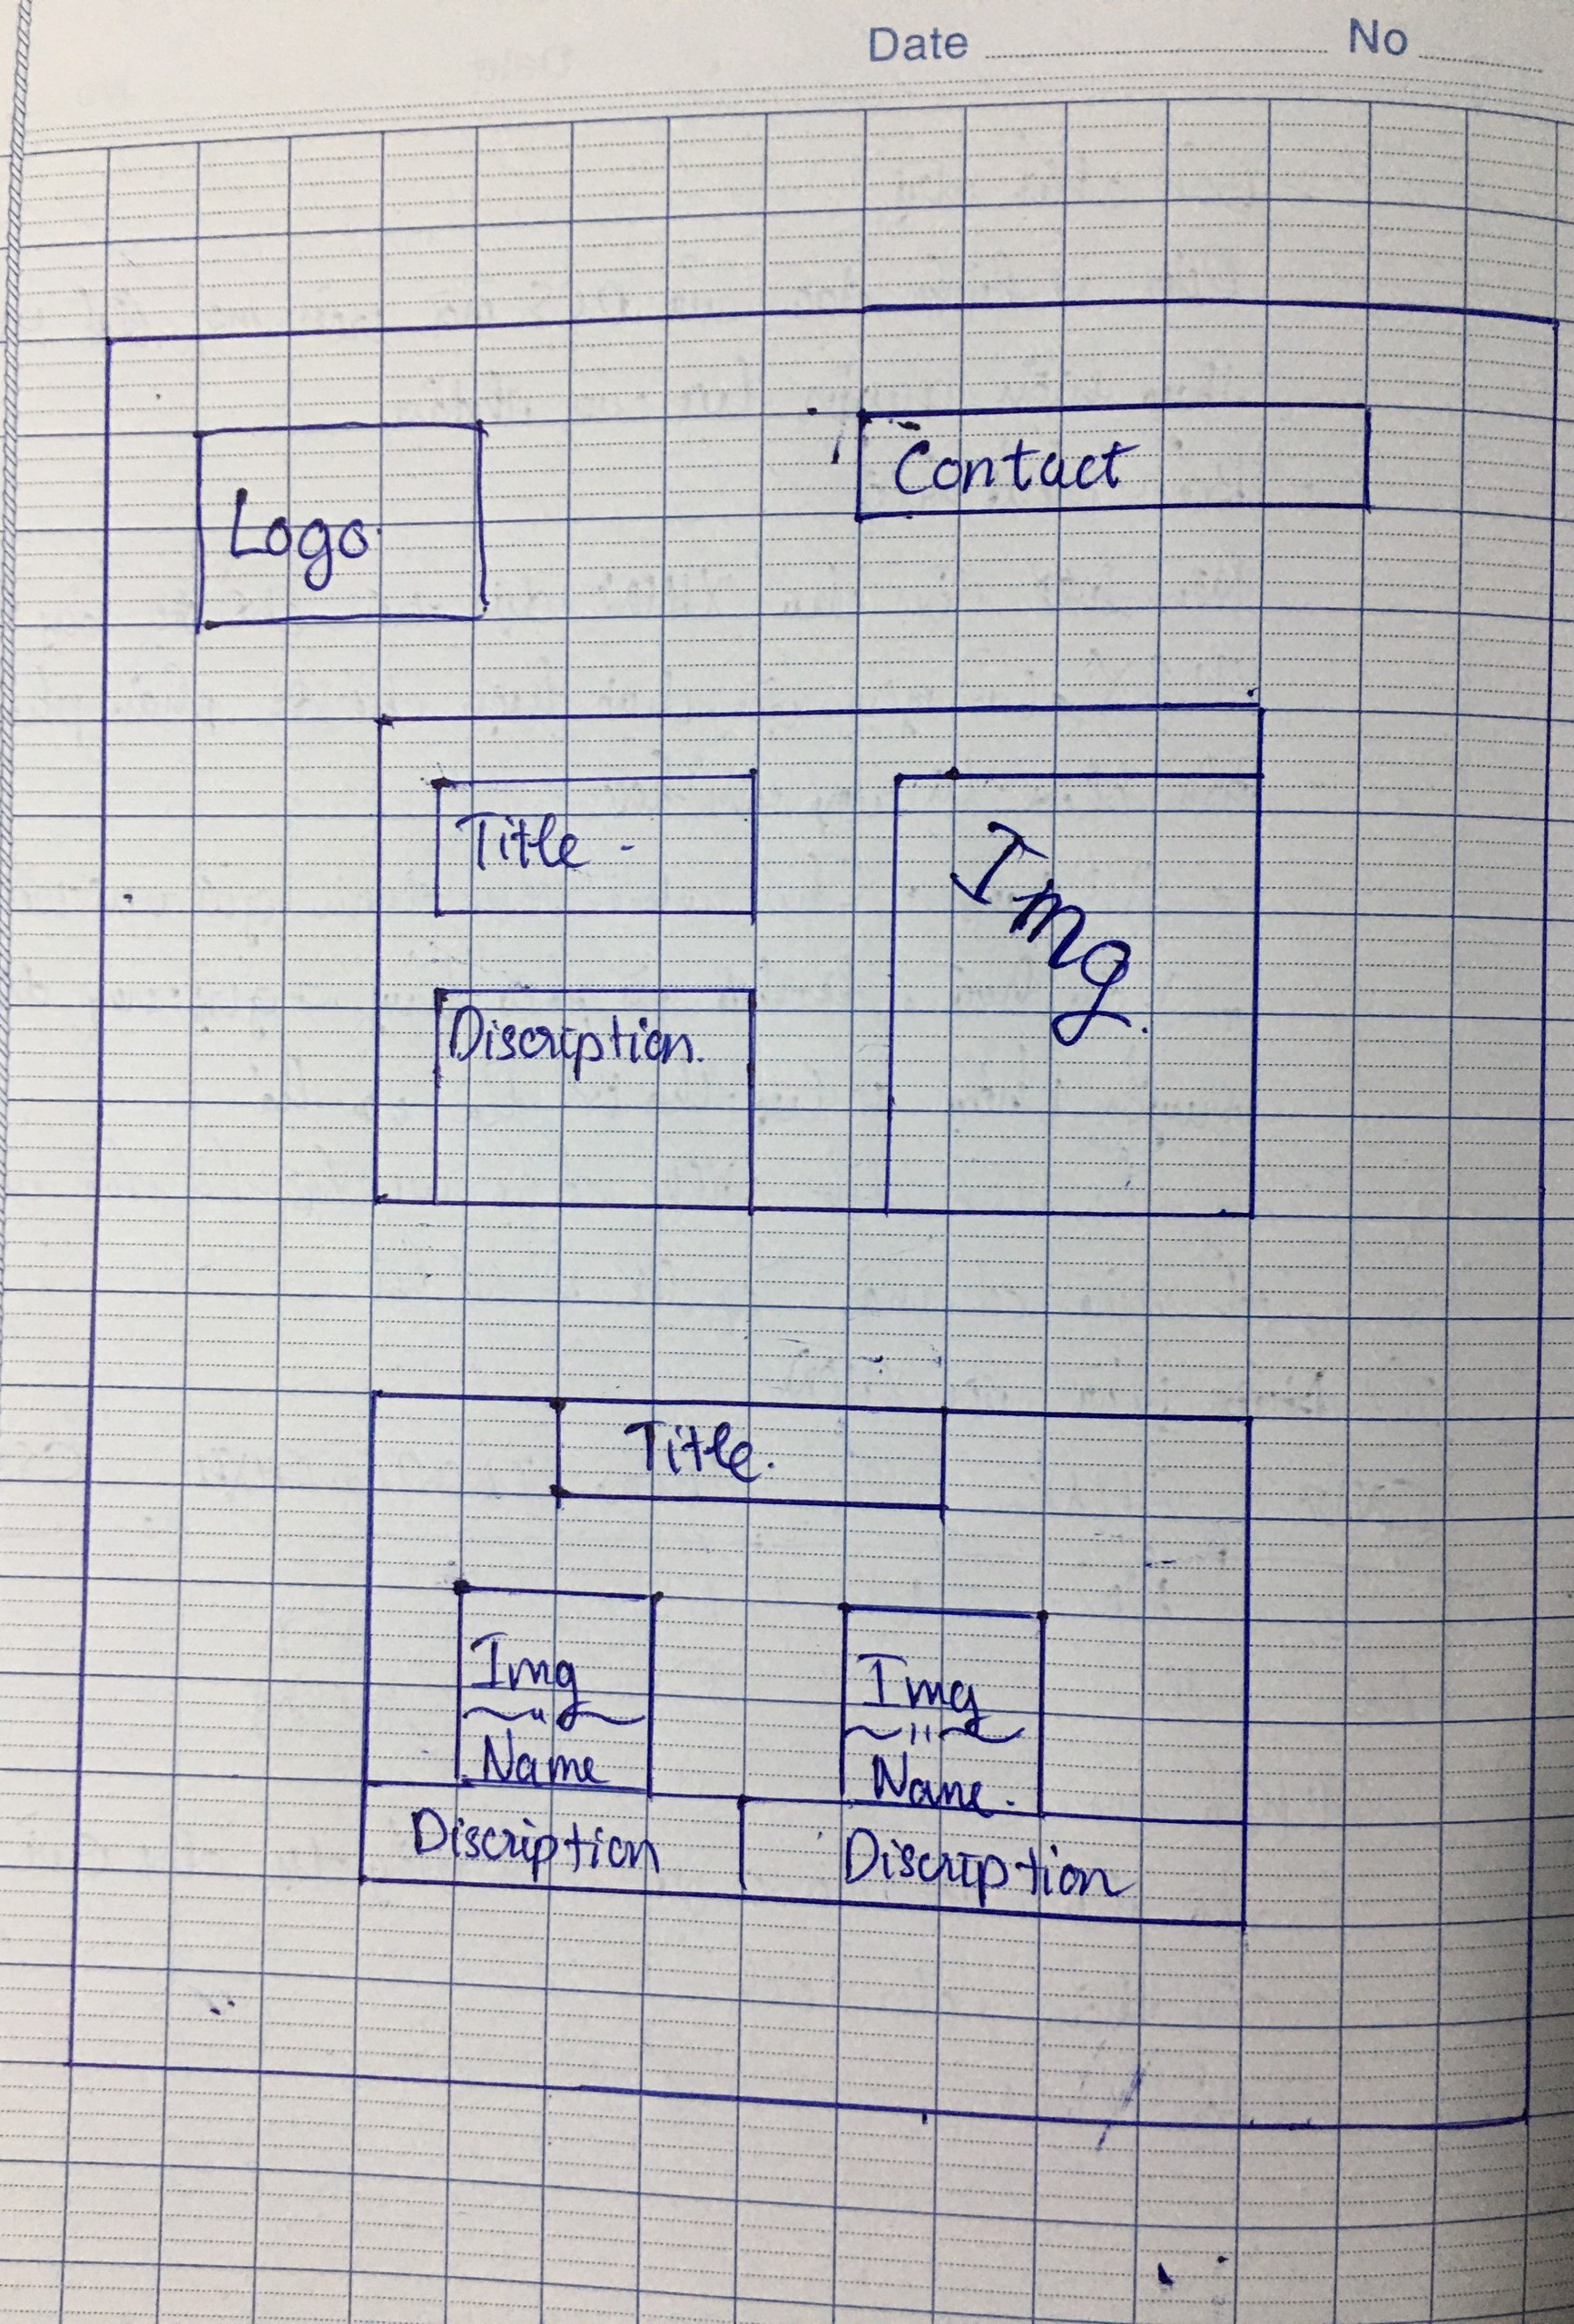 Date No
Logo.
Contact
Title -
Img.
Discription.
Title.
Img Img
Name Name.
Discription Discription